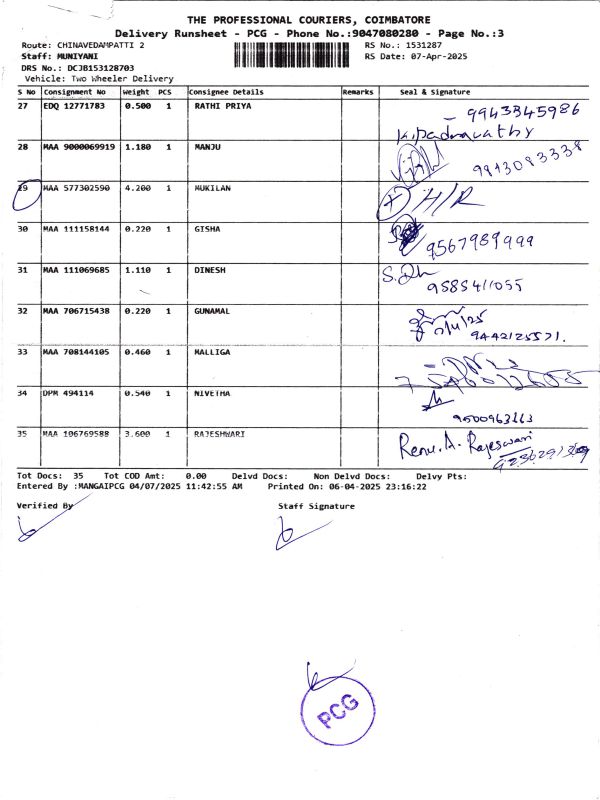 THE PROFESSIONAL COURIERS, COIMBATORE
Delivery Runsheet - PCG - Phone No.:9047080280 - Page No.:3
Route: CHINAVEDAMPATTI 2 RS No.: 1531287
Staff: MUNIYANI RS Date: 07-Apr-2025
DRS No.: DCJB153128703
Vehicle: Two Wheeler Delivery
S No Consignment No Weight PCS Consignee Details Remarks Seal & Signature
27 EDQ 12771783 0.500 1 RATHI PRIYA 9943345986
K.padmavathy
28 MAA 9000069919 1.180 1 MANJU 9813083338
29 MAA 577302590 4.200 1 MUKILAN H/R
30 MAA 111158144 0.220 1 GISHA 9567989999
31 MAA 111069685 1.110 1 DINESH
9585411055
32 MAA 706715438 0.220 1 GUNAMAL
9442125571.
33 MAA 708144105 0.460 1 MALLIGA
34 DPM 494114 0.540 1 NIVETHA
9500963113
35 MAA 106769588 3.600 1 RAJESHWARI Renu.A. Rajeswari
Tot Docs: 35 Tot COD Amt: 0.00 Delvd Docs: Non Delvd Docs: Delvy Pts:
Entered By :MANGAIPCG 04/07/2025 11:42:55 AM Printed On: 06-04-2025 23:16:22
Verified By Staff Signature
PCG